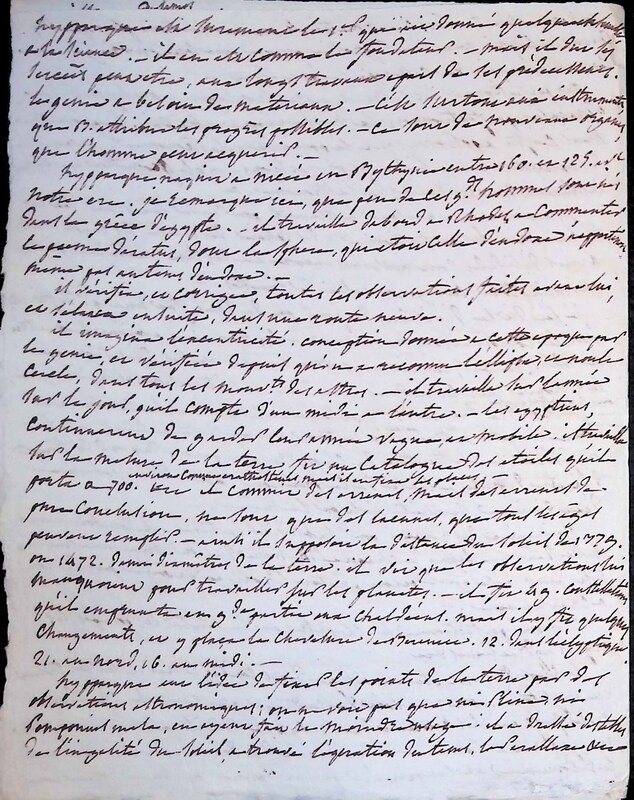 hypparque est surement le 1er qui ait donné quelque
a la science. – il en est comme le fondateur. – mais il dut ses
succès peut etre, aux longs travaux epars de ses prédecesseurs.
le genie a besoin de materiaux. – c'est surtout aux instruments
que B. attribue les progrès possibles. – ce sont de nouveaux organes
que l'homme peut acquerir. –
hypparque naquit a nicée en Bythinie entre 160. et 125. avt
notre ere. je remarque ici, que peu de ces gds hommes sont nés
dans la grèce d'egypte. – il travailla dabord a Rhodes, a Commenter
le poeme d'aratus, dont la sphere, qui etoit celle d'eudoxe n'appartient
même pas au tems d'eudoxe. –
il vérifia, et corrigea, toutes les observations faites avant lui,
et s'elança ensuite, dans une route neuve.
il imagina l'excentricité. conception donnée a cette epoque par
le genie, et vérifiée depuis qu'on a reconnu l'ellipse, et non le
cercle, dans tous les mouvts des astres. – il travailla sur l'année
sur le jour, qu'il compte d'un midi a l'autre. – les egyptiens,
continuerent de garder leur année vague, et mobile. il travailla
sur la mesure de la terre, fit un Catalogue des etoiles qu'il
porta a 700. environ comme aratosthenes, mais il en fixa les places.
il commit des erreurs, mais des erreurs de
pure Conclusion, ne sont que des lacunes, que tous les ages
peuvent remplir. – ainsi il supposa la distance du soleil de
ou 1472. demi diamètres de la terre. il vit que les observations lui
manquoient pour travailler sur les planètes. – il fit 49. constellations
qu'il emprunta en gde partie aux chaldéens. mais il y fit quelques
Changements, et y plaça la Chevelure de Berenice. 12. dans l'écliptique
21. au nord, 16. au midi. –
hypparque eut l'idée de fixer les points de la terre par des
observations astronomiques; on ne voit pas que ni Pline, ni
Pomponius mela, en ayent fait le moindre usage. il a dressé des tables
de l'inegalité du soleil, a trouvé l'equation du tems, la Parallaxe